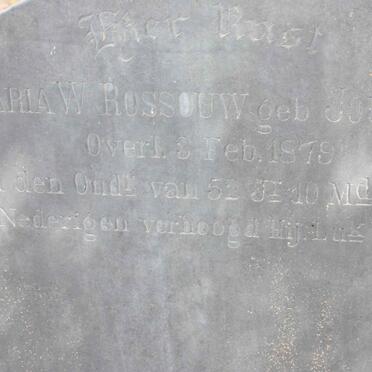 Hier Rust
ARIA W ROSSOUW geb JO
Overl. 3 Feb. 1879
den Oudn van 52 Jr 10 Md
Nederigen verhoogd Hij. Luk